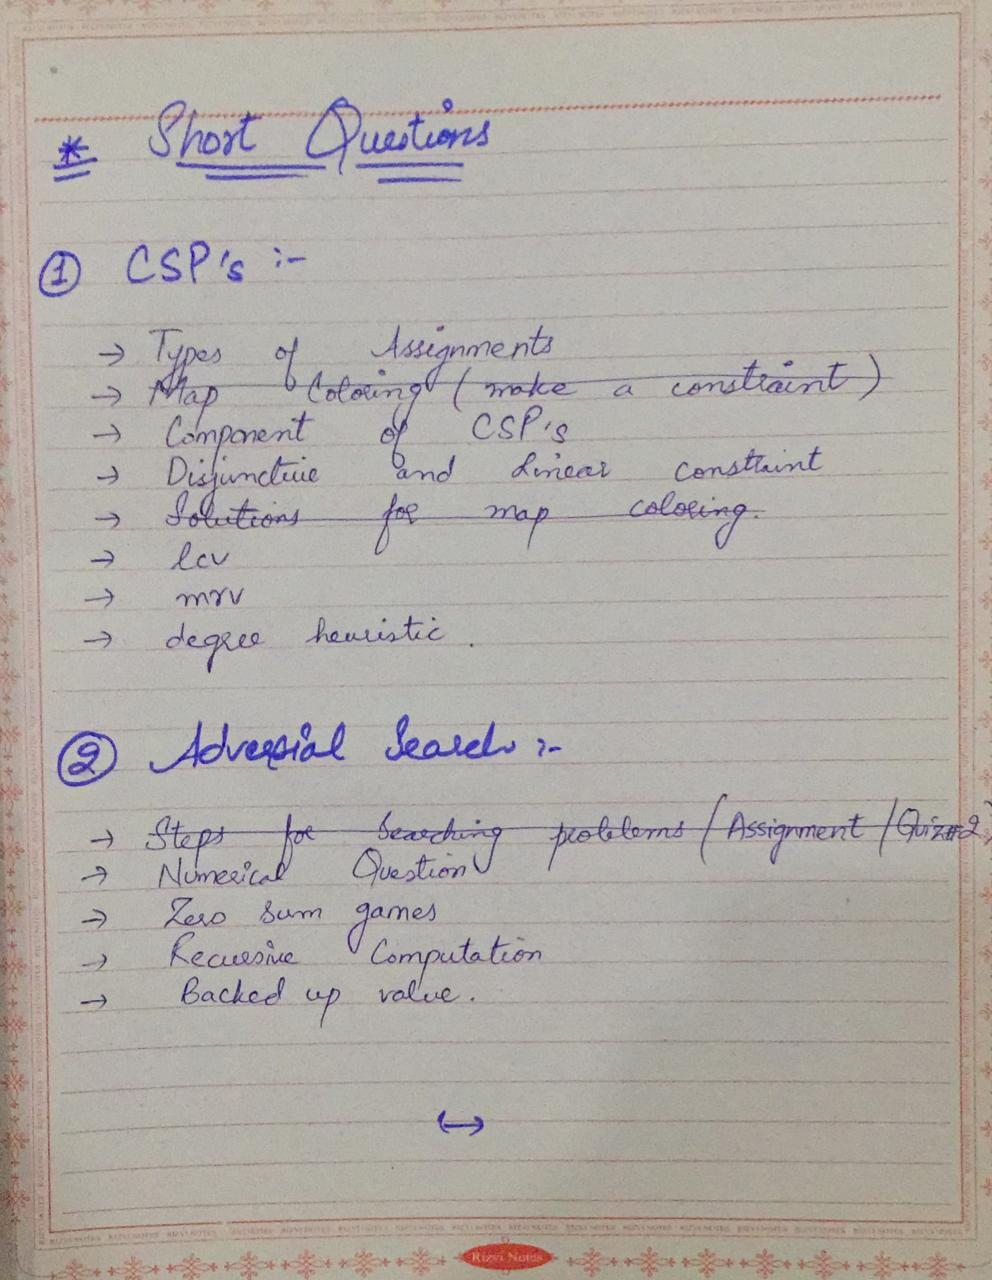 * Short Questions
① CSP's :-
→ Types of Assignments
→ Map Coloring (make a constraint)
→ Component of CSP's
→ Disjunctive and Linear constraint
→ Solutions for map coloring.
→ lcv
→ mrv
→ degree heuristic.
② Adversial Search :-
→ Steps for Searching problems (Assignment / Quiz#2)
→ Numerical Question
→ Zero sum games
→ Recursive Computation
→ Backed up value.
↔
Rizvi Notes